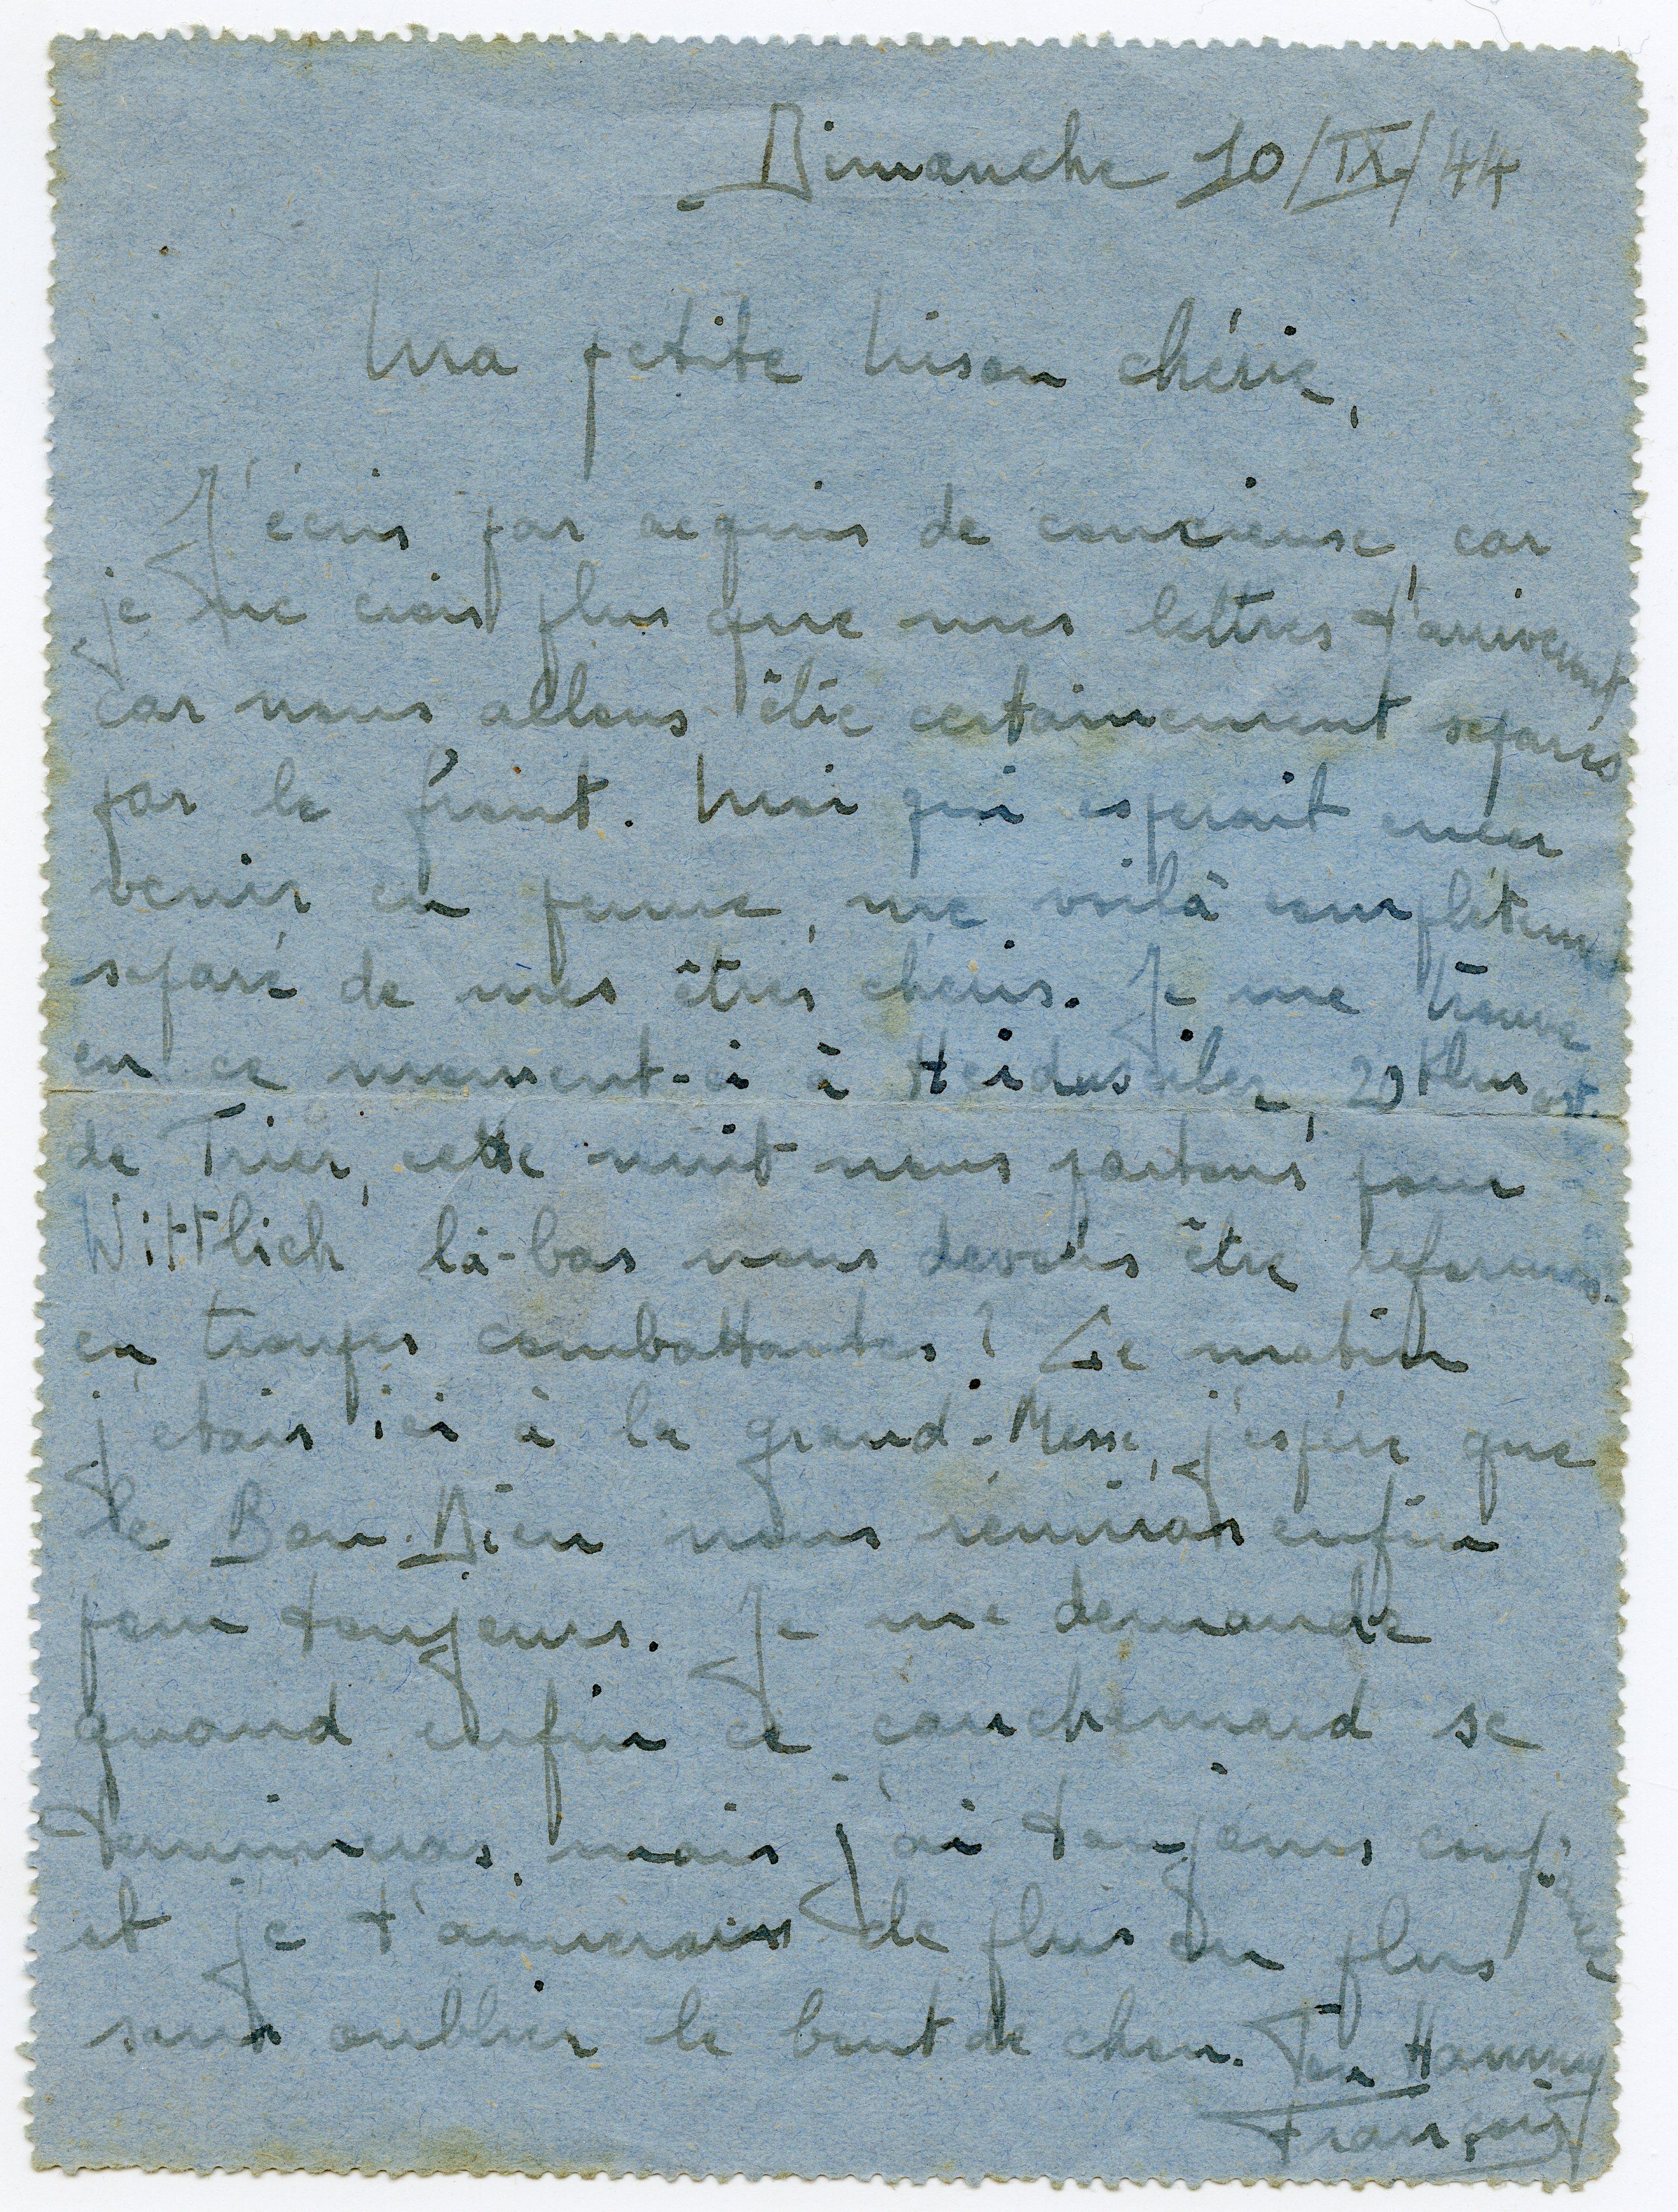 Dimanche 10/IX/44
Ma petite Mison chérie,
J'écris par acquis de conscience, car
je ne crois plus que mes lettres t'arrivent
car nous allons être certainement separés
par le front. Moi qui esperait encor
venir en perme, me voilà complètement
separé de mes êtres chéris. Je me trouve
en ce moment-ci à 20 Klm
de Trier, cette nuit nous partons pour
Wittlich là-bas nous devons être reformés
en troupes combattantes! Ce matin
j'etais ici à la grand-Messe, j'espére que
le Bon-Dieu nous réuniras enfin
pour toujours. Je me demande
quand enfin ce cauchemard se
terminras, mais j'ai toujours confiance
et je t'aimerais de plus en plus
sans oublier le bout de chou. Ton
François